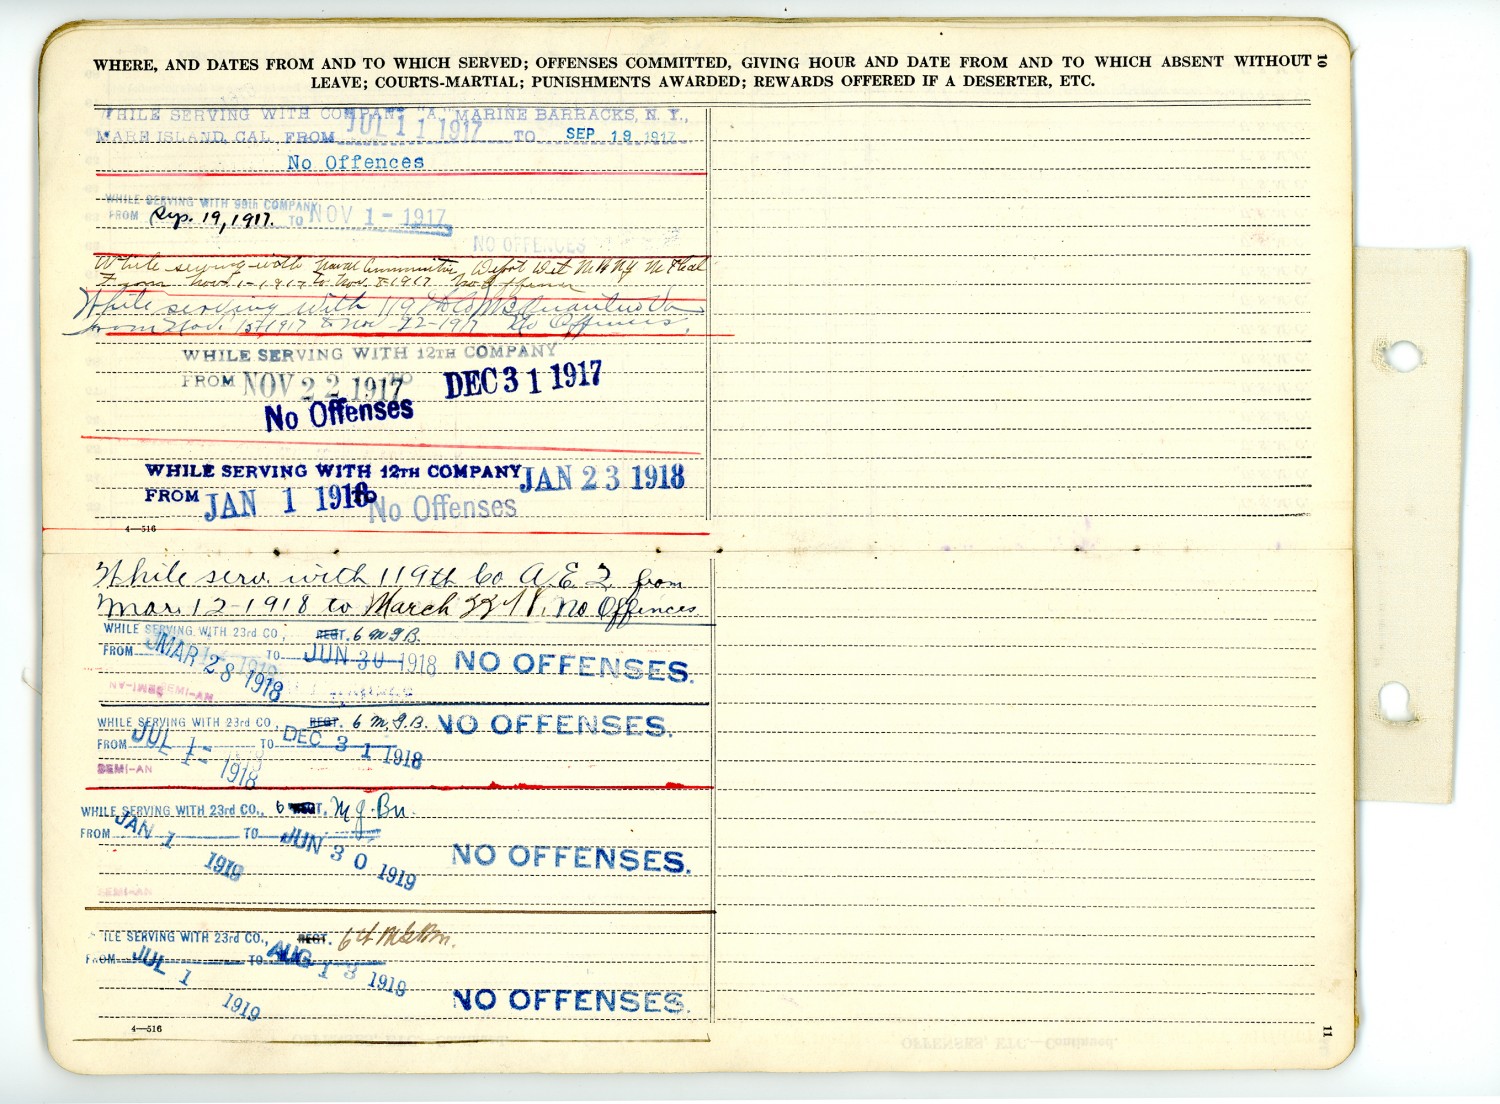 WHERE, AND DATES FROM AND TO WHICH SERVED; OFFENSES COMMITTED, GIVING HOUR AND DATE FROM AND TO WHICH ABSENT WITHOUT
LEAVE; COURTS-MARTIAL; PUNISHMENTS AWARDED; REWARDS OFFERED IF A DESERTER, ETC.
10
WHILE SERVING WITH COMPANY "A," MARINE BARRACKS, N. Y.,
MARE ISLAND, CAL, FROM JUL 11 1917 TO SEP 19 1917
No Offences
WHILE SERVING WITH 99th COMPANY
FROM Sep. 19, 1917. TO NOV 1 - 1917
NO OFFENCES
While serving with Naval Ammunition Depot Det M B N Y M Isl Cal
From Nov. 1-1917 to Nov. 8-1917 No Offences
While serving with 119th Co MB Quantico Va
from Nov. 1917 to Nov 22-1917 No Offences.
WHILE SERVING WITH 12TH COMPANY
FROM NOV 22 1917 TO DEC 31 1917
No Offenses
WHILE SERVING WITH 12TH COMPANY JAN 23 1918
FROM JAN 1 1918 to No Offenses
4—516
While serv. with 119th Co A.E.F. from
Mar. 12-1918 to March 1918. No Offences
WHILE SERVING WITH 23rd CO, REGT. 6 M G B.
FROM MAR 28 1918 TO JUN 30 1918 NO OFFENSES.
SEMI-AN
WHILE SERVING WITH 23rd CO, REGT. 6 M.G.B. NO OFFENSES.
FROM JUL 1- 1918 TO DEC 31 1918
SEMI-AN
WHILE SERVING WITH 23rd CO., 6 REGT. M G. Bn.
FROM JAN 1 1919 TO JUN 30 1919
NO OFFENSES.
SEMI-AN
WHILE SERVING WITH 23rd CO., REGT. 6th M G Bn.
FROM JUL 1 1919 TO AUG 13 1919
NO OFFENSES.
4—516
11
OFFENSES, ETC.—Continued.